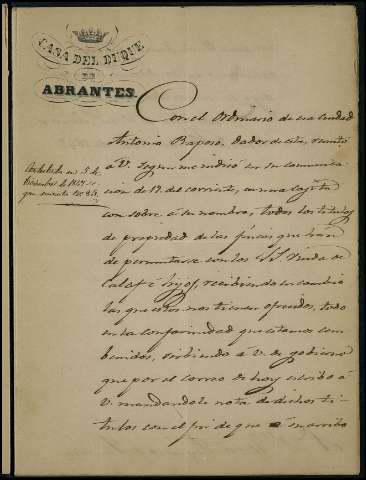 CASA DEL DUQUE
DE
ABRANTES.
Con el Ordinario de esa ciudad
Antonio Raposo, dador de esta, remito
á V. segun me indicó en su comunica-
cion de 12 del corriente, en una cajita
con sobre á su nombre, todos los titulos
de propiedad de las fincas que han
de permutarse con los SS. Viuda de
Calaf é hijos, recibiendo en cambio
las que estos nos tienen ofrecidas, todo
en la conformidad que estamos con-
benidos, sirbiendo á V. de gobierno
que por el correo de hoy escribo á
V. mandandole nota de dichos ti-
tulos con el fin de que á su arribo
Contestada en 5 de
Diciembre de 1847
que